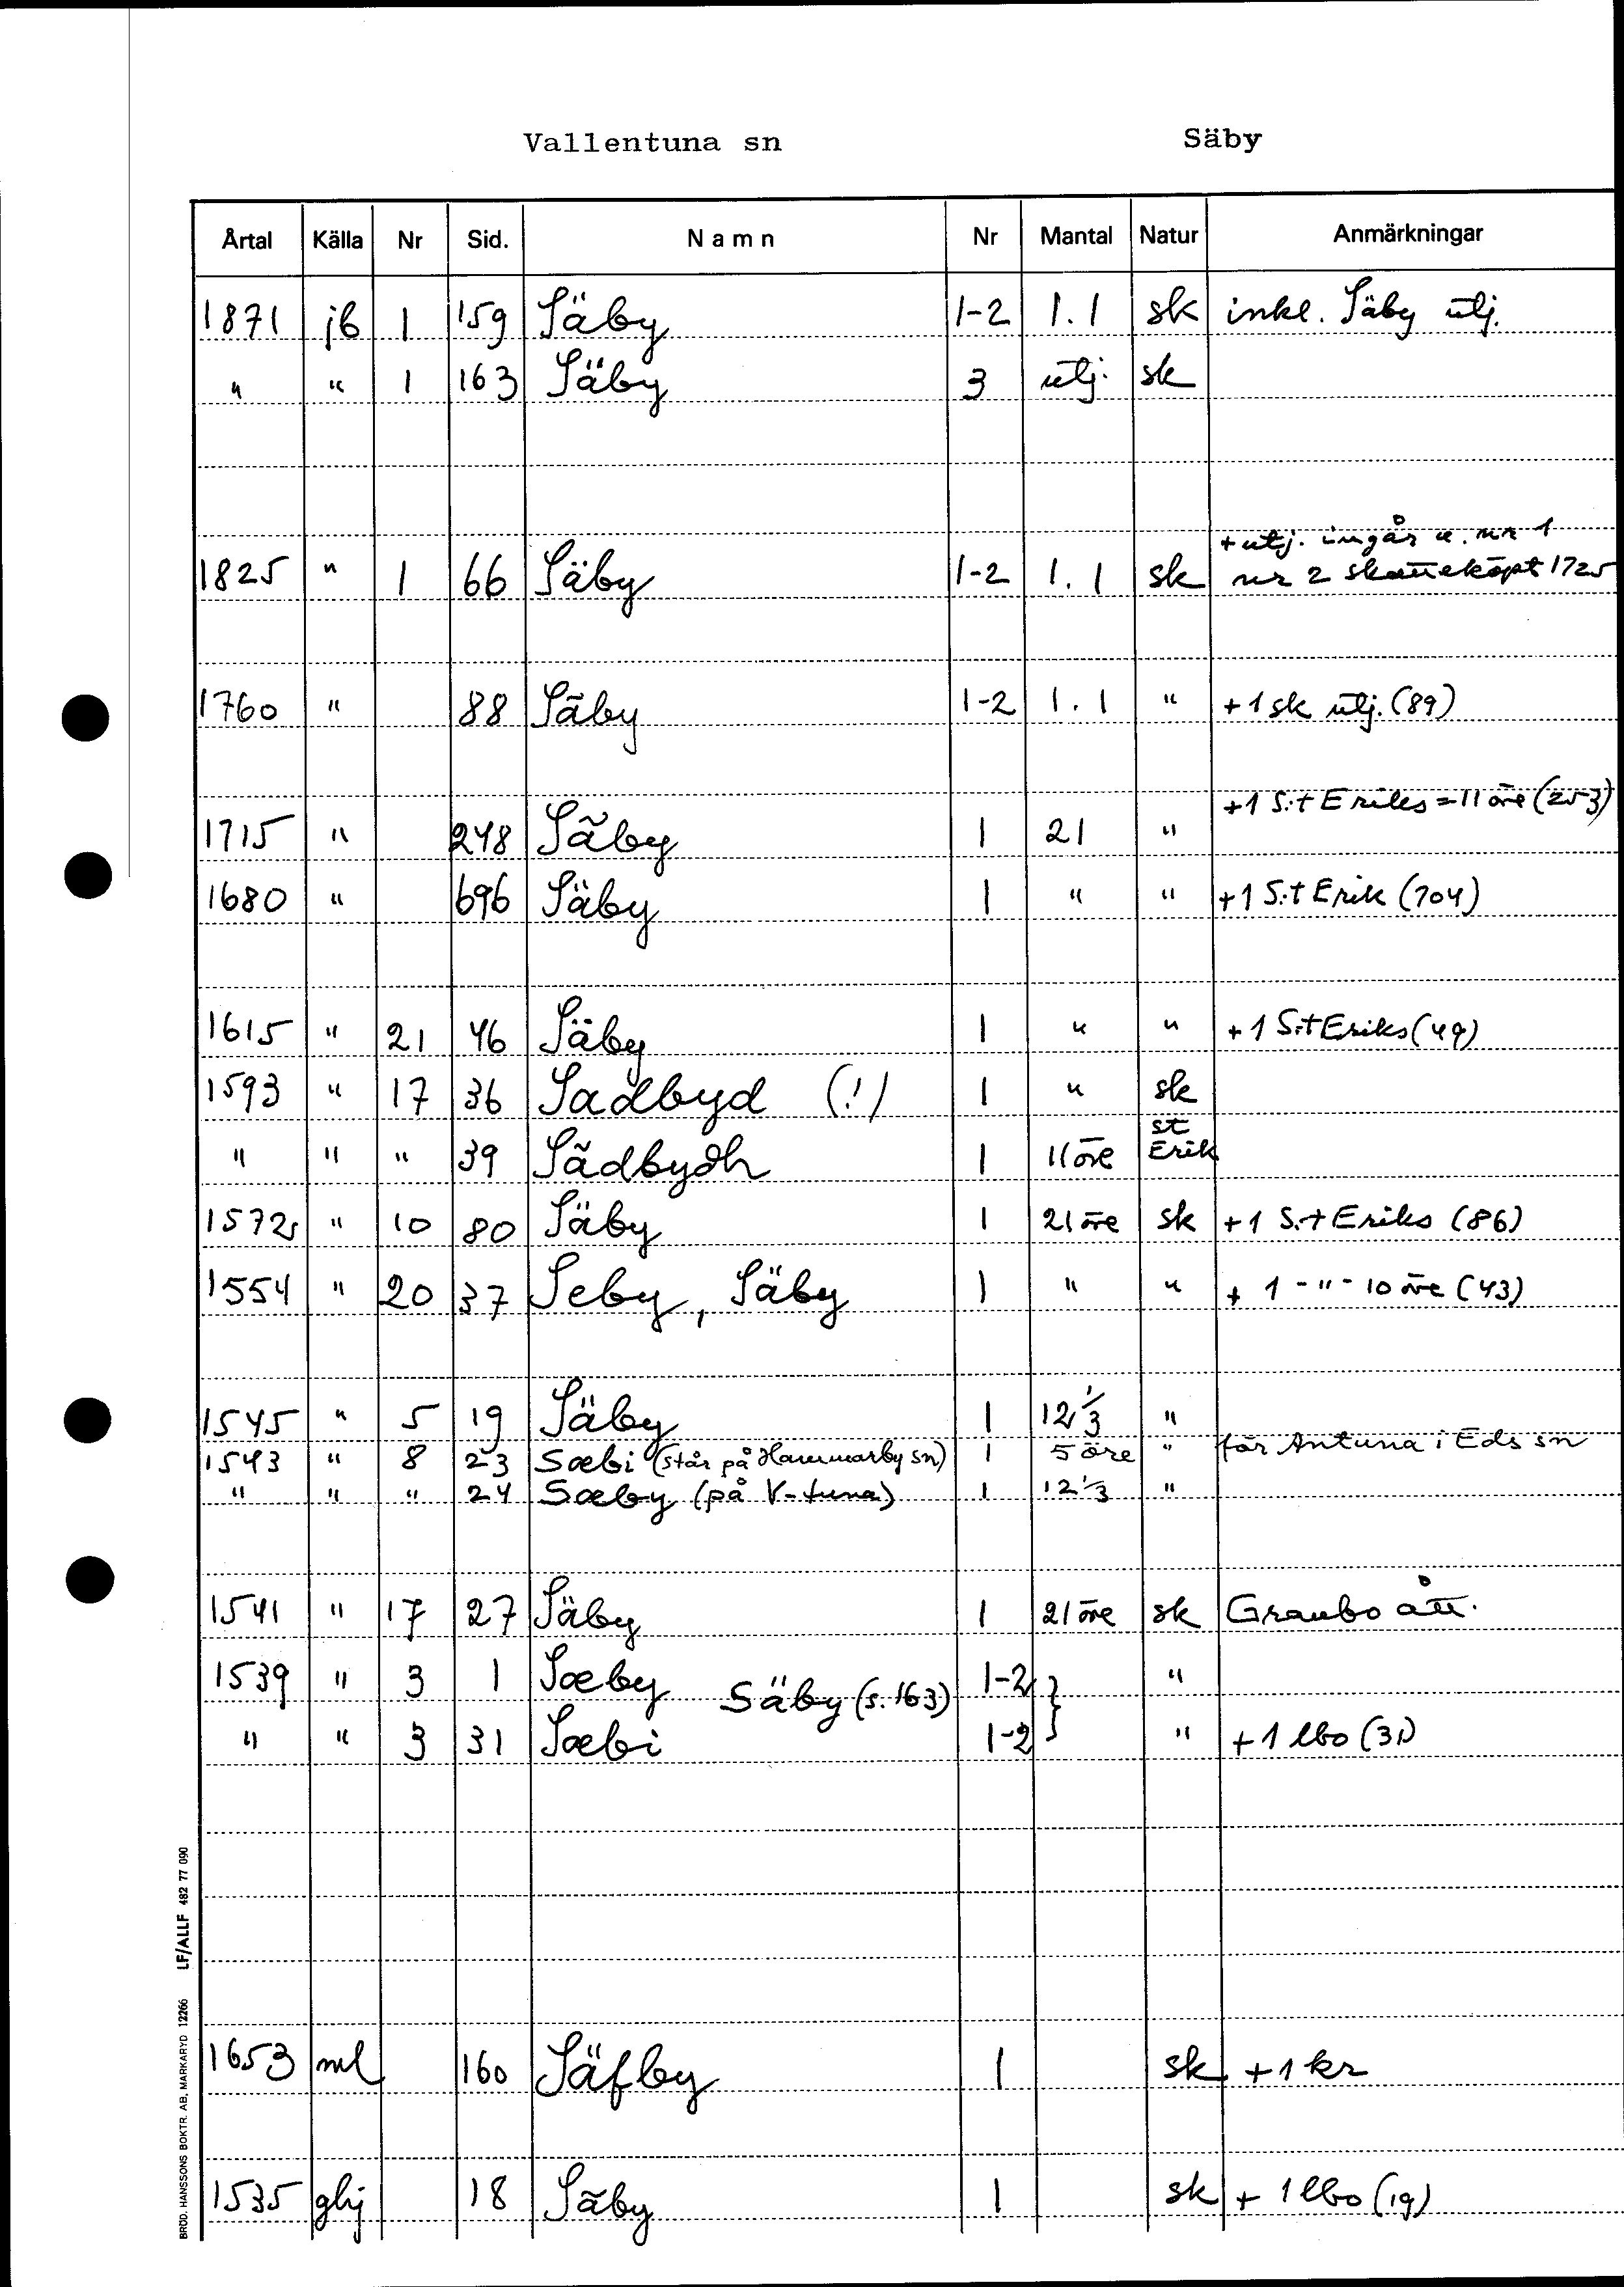 Vallentuna sn Säby
Årtal Källa Nr Sid. Namn Nr Mantal Natur Anmärkningar
1871 jb 1 159 Säby 1-2 1.1 sk inkl. Säby utj.
" " 1 163 Säby 3 utj. sk
+ utj. ingår u. nr 1
1825 " 1 66 Säby 1-2 1.1 sk nr 2 skatteköpt 1725
1760 " 88 Säby 1-2 1.1 " +1 sk utj. (89)
+1 S:t Eriks = 11 öre (253)
1715 " 248 Säby 1 21 "
1680 " 696 Säby 1 " " +1 S:t Erik (704)
1615 " 21 46 Säby 1 " " +1 S:t Eriks (49)
1593 " 17 36 Sadbyd (!) 1 " sk
" " " 39 Sädbydh 1 11 öre st Erik
1572 " 10 80 Säby 1 21 öre sk +1 S:t Eriks (86)
1554 " 20 37 Seby, Säby 1 " " + 1 - " - 10 öre (43)
1545 " 5 19 Säby 1 12 1/3 "
1543 " 8 23 Sæbi (står på Hammarby sn) 1 5 öre " för Antuna i Eds sn
" " " 24 Sæby (på V-tuna) 1 12 1/3 "
1541 " 17 27 Säby 1 21 öre sk Graubo ått.
1539 " 3 1 Sæby Säby (s. 163) 1-2 } "
" " 3 31 Sæbi 1-2 " +1 lbo (31)
1653 ml 160 Säfby 1 sk +1 kr
1535 ghj 18 Säby 1 sk + 1 lbo (19)
BRÖD. HANSSONS BOKTR. AB, MARKARYD 12266 LF/ALLF 482 77 090